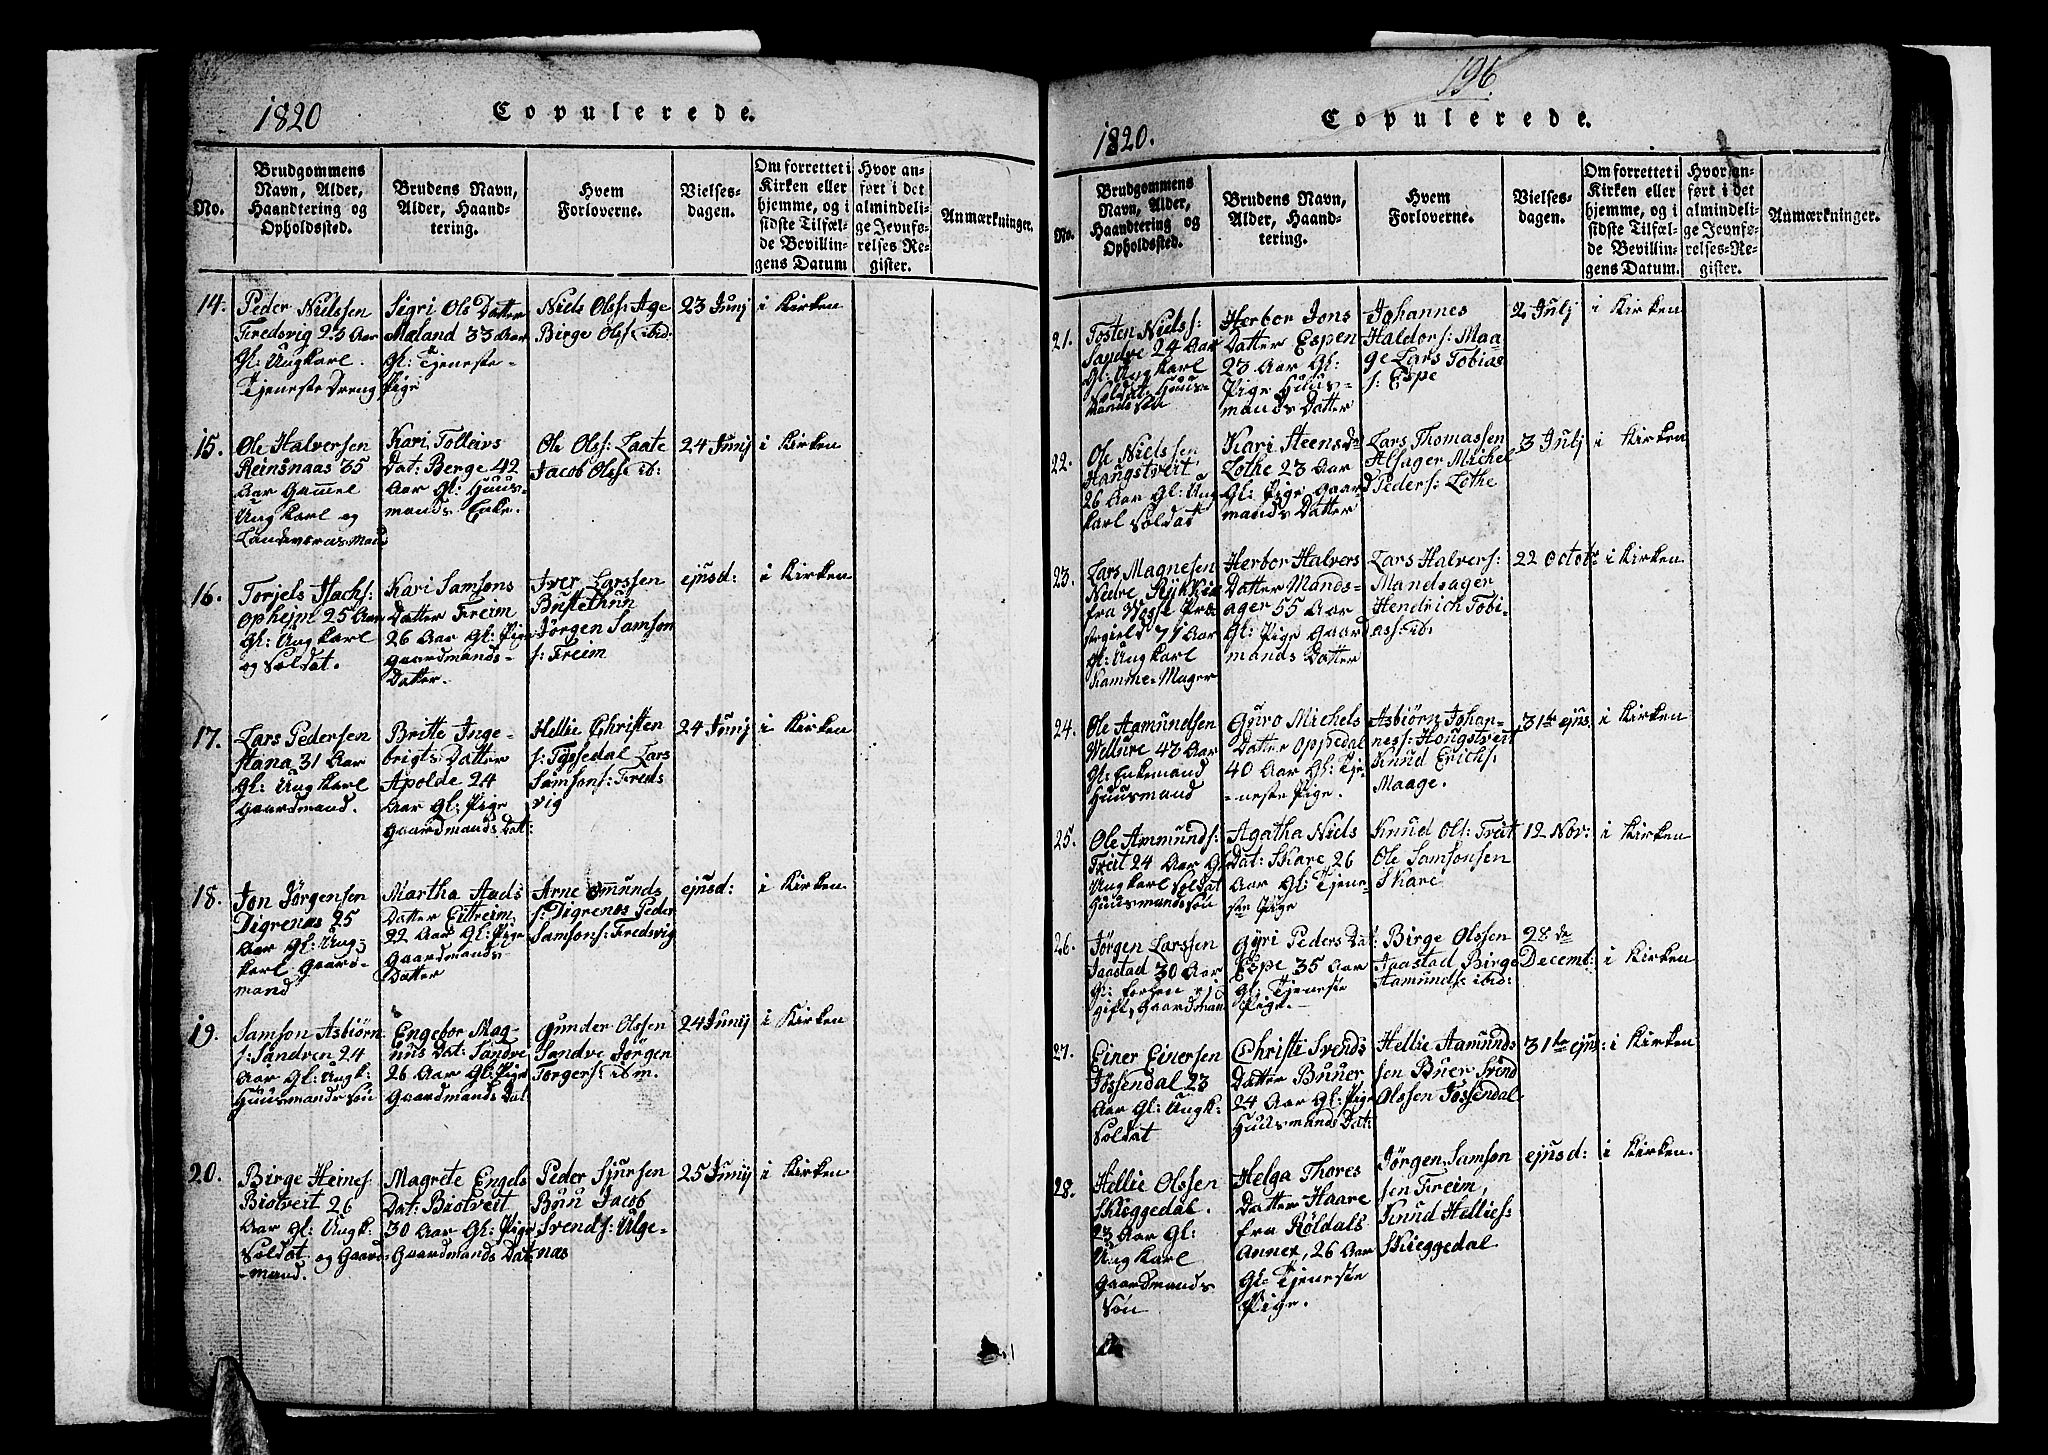 1820
Copulerede.
No.
Brudgommens
Navn, Alder,
Haandtering og
Opholdssted.
Brudens Navn,
Alder, Haand-
tering.
Hvem
Forloverne.
Vielses-
dagen.
Om forrettet i
Kirken eller
hjemme, og i
sidste Tilfæl-
de Bevillin-
gens Datum
Hvor an-
ført i det
almindeli-
ge Jevnfø-
relses-Re-
gister.
Anmærkninger.
14.
Peder Nielssen
Fredsvig 23 Aar
Gl: Ungkarl.
Tjeneste Dreng
Sigri Ols Datter
Maland 33 Aar
Gl: Tjeneste-
Pige
Niels Olss: Age
Birge Olss: ibid:
23 Junj
i Kirken
15.
Ole Halversen
Reinsnaas 35
Aar Gammel
Ungkarl og
Landeværns Mand
Kari Tolleivs
Dat: Berge 42
Aar Gl: Huus-
mands Enke.
Ole Olss: Laate
Jacob Olss: ib:
24 Junj
i Kirken
16.
Torjels Isachs:
Opheim 25 Aar
Gl: Ungkarl
og Soldat.
Kari Samsons
Datter Freim
26 Aar Gl: Pige
Gaardmands-
Datter.
Iver Larssen
Bustethun
Jørgen Samson
s: Freim
ejusd:
i Kirken
17.
Lars Pedersen
Hana 31 Aar
Gl: Ungkarl
Gaardmand.
Britte Inge-
brigts Datter
Apolde 24
Aar Gl: Pige
Gaardmands Dat:
Hellie Christen
s: Tyssedal Lars
Samsons: Freds
vig
24 Junj
i Kirken
18.
Jon Jørgensen
Digrenæs 25
Aar Gl: Ung-
karl Gaard-
mand
Martha Aads
Datter Eitreim
22 Aar Gl: Pige
Gaardmands-
Datter
Arne Omunds
s: Digrenæs Peder
Samsons: Fredsvig
ejusd:
i Kirken
19.
Samson Asbiørn
s: Sandven 24
Aar Gl: Ungk:
Huusmands Søn
Engebor Mag-
nus Dat: Sandve
26 Aar Gl: Pige
Gaardmands Dat
Gunder Olssen
Sandve Jørgen
Torgers: ibm.
24 Junij
i Kirken
20.
Birge Heines:
Biotveit 26
Aar Gl: Ungk:
Soldat og Gaard-
mand.
Magrete Engels
Dat: Biotveit
30 Aar Gl: Pige
Gaardmands Dat
Peder Sjursen
Buu Jacob
Svends: Ulge-
næs
25 Junij
i Kirken
196.
1820.
Copulerede.
No.
Brudgommens
Navn, Alder,
Haandtering og
Opholdssted.
Brudens Navn,
Alder, Haand-
tering.
Hvem
Forloverne.
Vielses-
dagen.
Om forrettet i
Kirken eller
hjemme, og i
sidste Tilfæl-
de Bevillin-
gens Datum.
Hvor an-
ført i det
almindeli-
ge Jevnfø-
relses-Re-
gister.
Anmærkninger.
21.
Tosten Niels s:
Sandve 24 Aar
Gl: Ungkarl
Soldat Huus-
mands Søn
Herbor Jons
Datter Espen
23 Aar Gl:
Pige Huus-
mands Datter
Johannes
Haldors: Maa-
ge Lars Tobias
s: Espe
2 Julj
i Kirken
22.
Ole Nielssen
Haugstveit
26 Aar Gl: Ung
karl Soldat
Kari Steens da
Lothe 23 Aar
Gl: Pige Gaard
mands Datter
Lars Thomassen
Alsager Michel
Peders: Lothe
3 Julj
i Kirken
23.
Lars Magnesen
Nedre Rykkie
fra Vosse Præ-
stegield 71 Aar
Gl: Ungkarl
Kamme-Mager
Herbor Halvers
Datter Mands-
ager 55 Aar
Gl: Pige Gaard
mands Datter
Lars Halvers:
Mandsager
Hendrich Tobi-
ass: ib:
22 Octobr
i Kirken
24.
Ole Aamundsen
Vellure 43 Aar
Gl: Enkemand
Huusmand
Guro Michels
Datter Oppedal
40 Aar Gl: Tje-
neste Pige.
Asbiørn Johan-
ness: Hougstveit
Knud Erichs:
Maage.
31te ejus.
i Kirken
25.
Ole Ammunds:
Freit 24 Aar Gl
Ungkarl Soldat
Huusmands Søn
Agatha Niels
Dat: Skare 26
Aar Gl: Tjene-
ste Pige
Knud Ols: Freit
Ole Samsonsen
Skare
12 Nov:
i Kirken
26.
Jørgen Larssen
Jaastad 30 Aar
Gl:
gift, Gaardman
Gyri Peders Dat:
Espe 35 Aar
Gl: Tjeneste
Pige.
Birge Olssen
Jaastad Birge
Aamunds: ibid:
28de
Decemt:
i Kirken
27.
Einer Einersen
Jøssendal 23
Aar Gl: Ungk:
Soldat
Christi Svends
Datter Buuer
24 Aar Gl: Pige
Huusmands Dat:
Hellie Aamunds
sen Buer Svend
Olssen Jøssendal
31te ejus:
i Kirken
28.
Hellie Olssen
Skieggedal.
23 Aar Gl:
Ungkarl
Gaardmands
Søn
Helga Thores
Datter Haare
fra Røldals
Annex, 26 Aar
Gl: Tjeneste
Pige.
Jørgen Samson
sen Freim,
Knud Hellies:
Skieggedal
ejusd:
i Kirken.